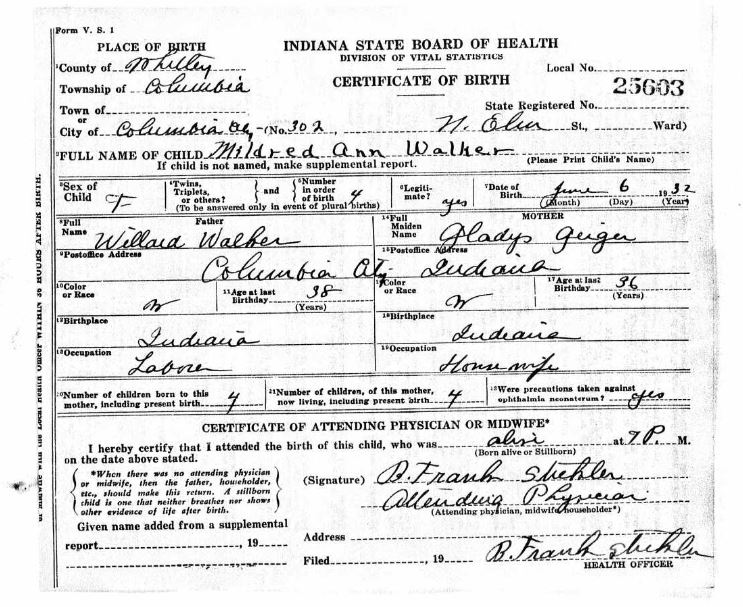 Form V. S. 1
PLACE OF BIRTH
INDIANA STATE BOARD OF HEALTH
DIVISION OF VITAL STATISTICS
CERTIFICATE OF BIRTH
Local No.
25603
State Registered No.
County of Whitley
Township of Columbia
Town of
or
City of Columbia City (No. 302, N. Elm St., Ward)
FULL NAME OF CHILD Mildred Ann Walker
If child is not named, make supplemental report. (Please Print Child's Name)
Sex of Child F
Twins, Triplets, or others? and Number in order of birth 4
(To be answered only in event of plural births)
Legitimate? yes
Date of Birth June 6 1932
(Month) (Day) (Year)
Father
Full Name Willard Walker
MOTHER
Full Maiden Name Gladys Geiger
Postoffice Address
Postoffice Address
Columbia City Indiana
Color or Race W
Age at last Birthday 38
(Years)
Color or Race W
Age at last Birthday 36
(Years)
Birthplace
Indiana
Birthplace
Indiana
Occupation
Laborer
Occupation
Housewife
Number of children born to this mother, including present birth 4
Number of children, of this mother, now living, including present birth 4
Were precautions taken against ophthalmia neonatorum? yes
CERTIFICATE OF ATTENDING PHYSICIAN OR MIDWIFE*
I hereby certify that I attended the birth of this child, who was alive at 7 P. M.
(Born alive or Stillborn)
on the date above stated.
*When there was no attending physician
or midwife, then the father, householder,
etc., should make this return. A stillborn
child is one that neither breathes nor shows
other evidence of life after birth.
(Signature) B. Frank
Attending Physician
(Attending physician, midwife, householder*)
Given name added from a supplemental
report , 19
Address
Filed , 19
B. Frank
HEALTH OFFICER
HOURS AFTER BIRTH.